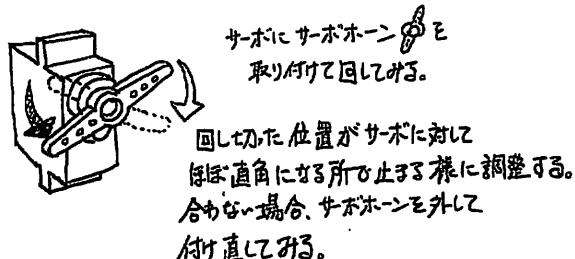 サーボに サーボホーン を
取り付けて回してみる。
回し切った位置がサーボに対して
ほぼ直角になる所で止まる様に調整する。
合わない場合、サーボホーンを外して
付け直してみる。